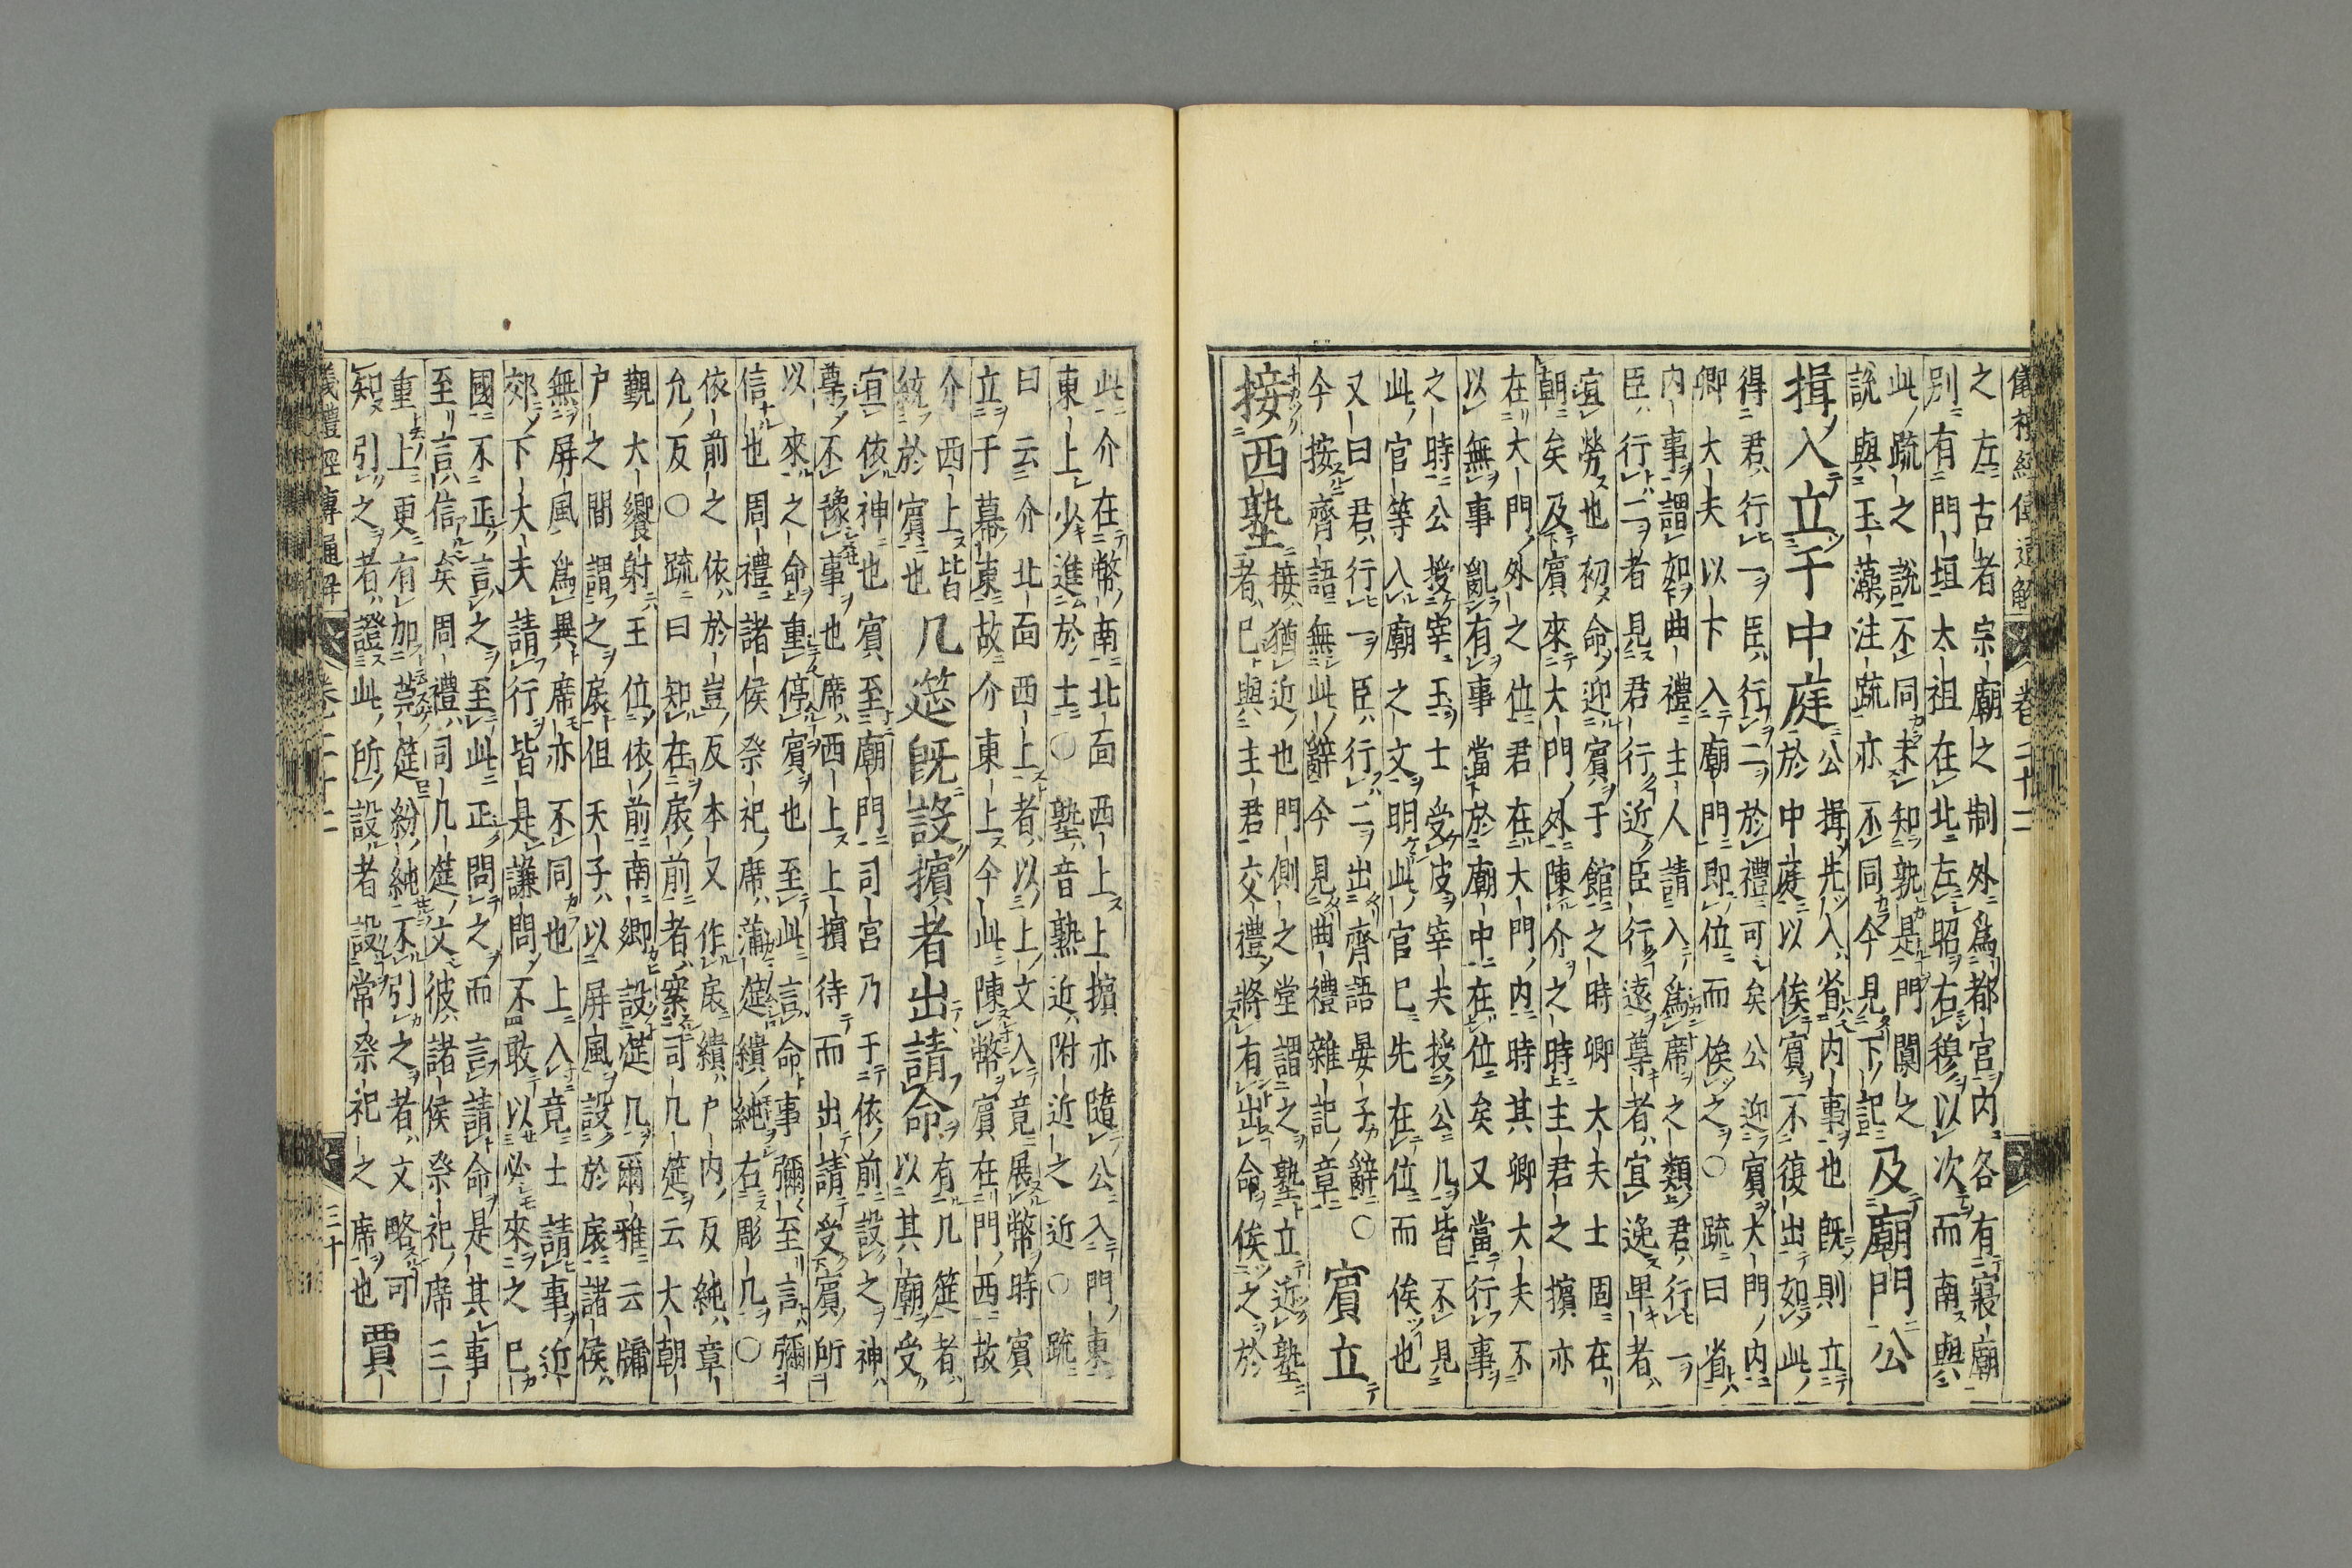 儀禮經傳通解 卷二十二
之左古者宗廟之制外爲都宮内各有寢廟
別有門垣太祖在北左昭右穆以次而南與
此疏之說不同未知孰是門闑之
說與玉藻注疏亦不同今見下記
及廟門公
揖入立于中庭
公揖先入省内事也既則立
於中庭以俟賓不復出如此
得君行一臣行二於禮可矣公迎賓大門内
卿大夫以下入廟門即位而俟之○疏曰省
内事謂如曲禮主人請入爲席之類君行一
臣行二者見君行近臣行遠尊者宜逸卑者
宜勞也初命迎賓于館之時卿大夫士固在
朝矣及賓來大門外陳介之時主君之擯亦
在大門外之位君在大門内時其卿大夫不
以無事亂有事當於廟中在位矣又當行事
之時公授宰玉士受皮宰夫授公几皆不見
此官等入廟之文明此官已先在位而俟也
又曰君行一臣行二出齊語晏子辭
今按齊語無此辭今見曲禮雜記章
○賓立
接西塾
接猶近也門側之堂謂之塾立近塾
者已與主君交禮將有出命俟之於
此介在幣南北面西上上擯亦隨公入門東
東上少進於士○塾音熟近附近之近○疏
曰云介北面西上者以上文入竟展幣時賓
立于幕東故介東上今此陳幣賓在門西故
介西上皆
統於賓也
几筵既設擯者出請命
有几筵者
以其廟受
宜依神也賓至廟門司宮乃于依前設之神
尊不豫事也席西上上擯待而出請受賓所
以來之命重停賓也至此言命事彌至言彌
信也周禮諸侯祭祀席蒲筵繢純右彫几○
依前之依於豈反本又作扆繢戶内反純章
允反○疏曰知在扆前者案司几筵云大朝
覲大饗射王位依前南鄉設筵几爾雅云牖
戶之間謂之扆但天子以屏風設於扆諸侯
無屏風爲異席亦不同也上入竟士請事近
郊下大夫請行皆是謙問不敢以必來之已
國不正言之至此正問之而言請命是其事
至言信矣周禮司几筵文彼諸侯祭祀席三
重上更有加莞筵紛純不引之者文略可
知引之者證此所設者設常祭祀之席也
賈
儀禮經傳通解 卷二十二 三十